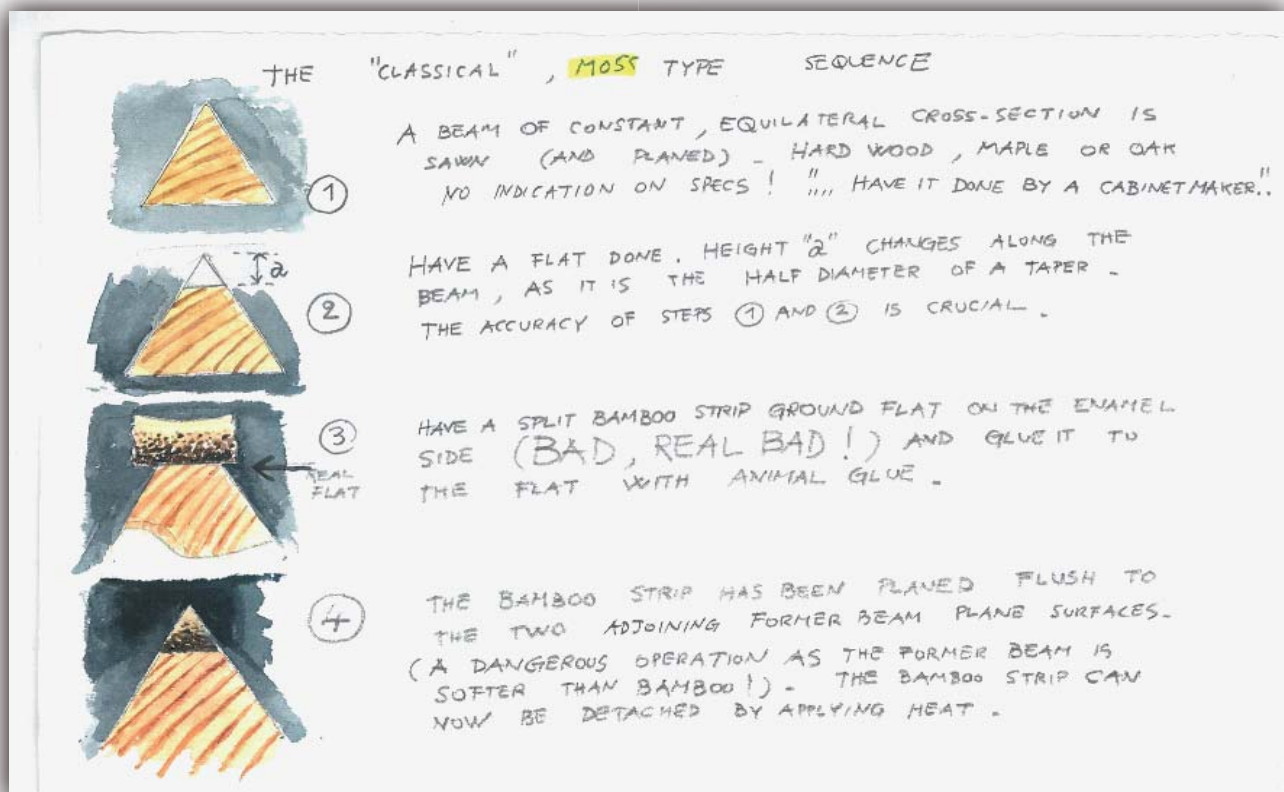 THE "CLASSICAL", MOSS TYPE SEQUENCE
①
A BEAM OF CONSTANT, EQUILATERAL CROSS-SECTION IS
SAWN (AND PLANED) - HARD WOOD, MAPLE OR OAK
NO INDICATION ON SPECS! ",,, HAVE IT DONE BY A CABINETMAKER."
a
②
HAVE A FLAT DONE. HEIGHT "a" CHANGES ALONG THE
BEAM, AS IT IS THE HALF DIAMETER OF A TAPER -
THE ACCURACY OF STEPS ① AND ② IS CRUCIAL.
③
REAL
FLAT
HAVE A SPLIT BAMBOO STRIP GROUND FLAT ON THE ENAMEL
SIDE (BAD, REAL BAD!) AND GLUE IT TO
THE FLAT WITH ANIMAL GLUE.
④
THE BAMBOO STRIP HAS BEEN PLANED FLUSH TO
THE TWO ADJOINING FORMER BEAM PLANE SURFACES-
(A DANGEROUS OPERATION AS THE FORMER BEAM IS
SOFTER THAN BAMBOO!)- THE BAMBOO STRIP CAN
NOW BE DETACHED BY APPLYING HEAT.